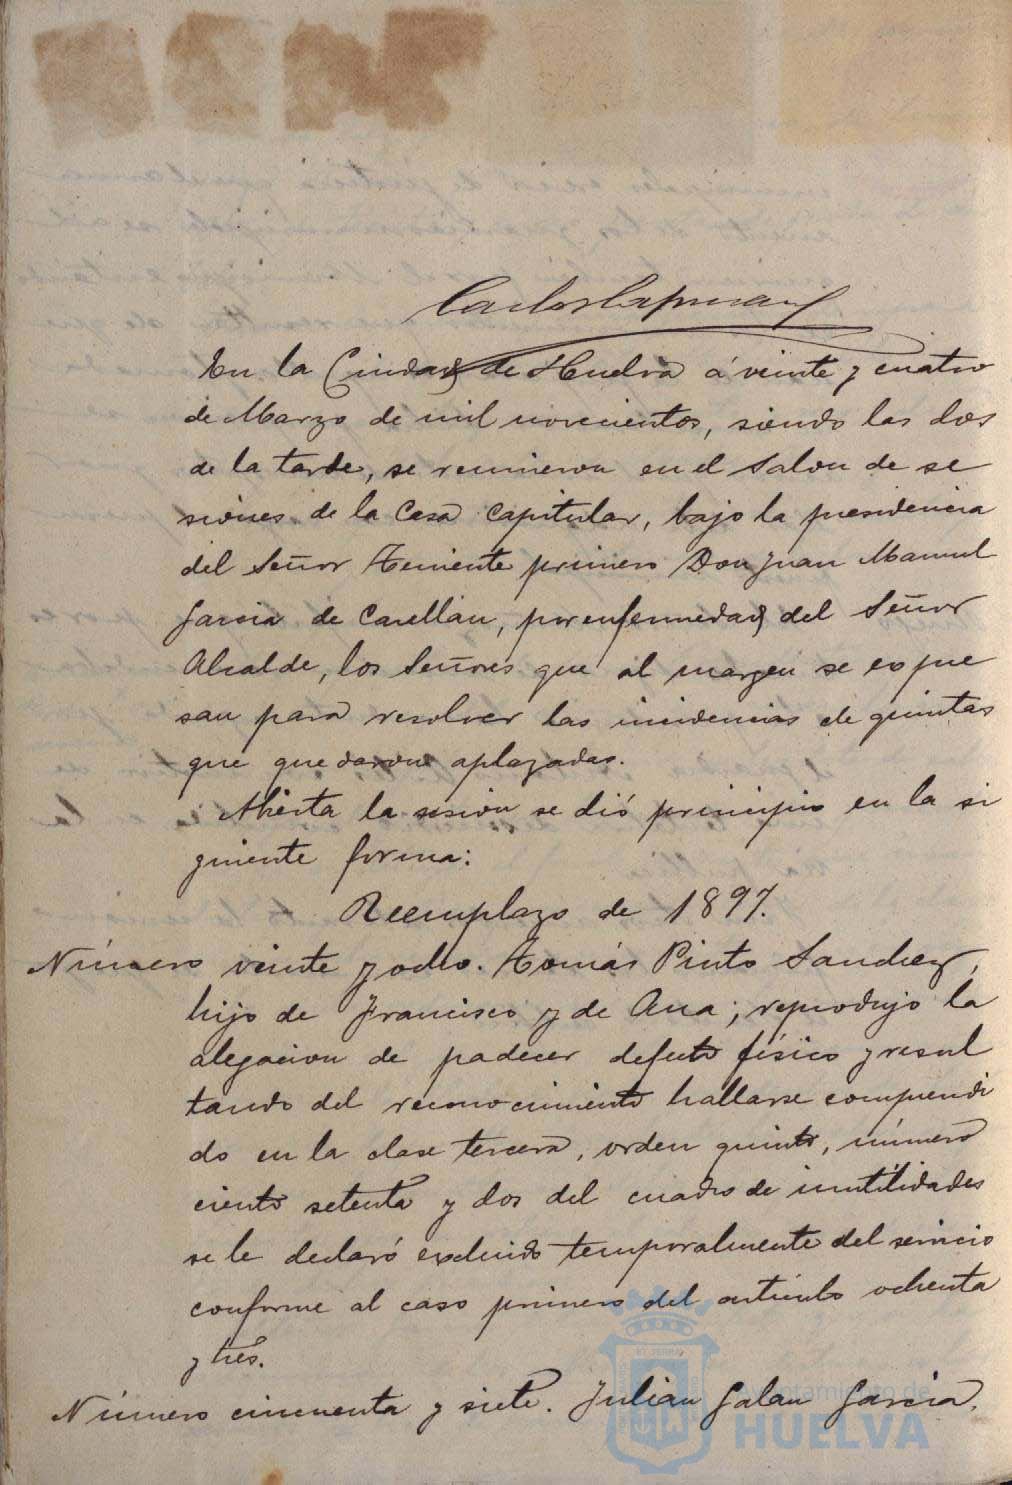 En la Ciudad de Huelva á veinte y cuatro
de Marzo de mil novecientos, siendo las dos
de la tarde, se reunieron en el Salon de se
siones de la Casa Capitular, bajo la presidencia
del Señor Teniente primero Don Juan Manuel
Garcia de Casellán, por enfermedad del Señor
Alcalde, los Señores que al margen se expre
san para resolver las incidencias de quintas
que quedaron aplazadas.
Abierta la sesion se dió principio en la si
guiente forma:
Reemplazo de 1897.
Número veinte y ocho. Tomás Pinto Sanchez,
hijo de Francisco y de Ana; reprodujo la
alegacion de padecer defecto físico y resul
tando del reconocimiento hallarse comprendi
do en la clase tercera, orden quinto, número
ciento setenta y dos del cuadro de inutilidades
se le declaró excluido temporalmente del servicio
conforme al caso primero del artículo ochenta
y tres.
Número cincuenta y siete. Julian Galan Garcia,
Ayuntamiento de
HUELVA